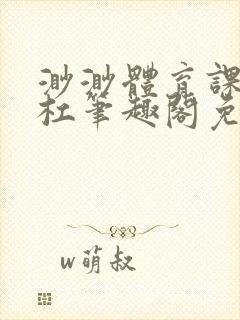 渺渺體育課
杜筆趣閣免
w萌叔